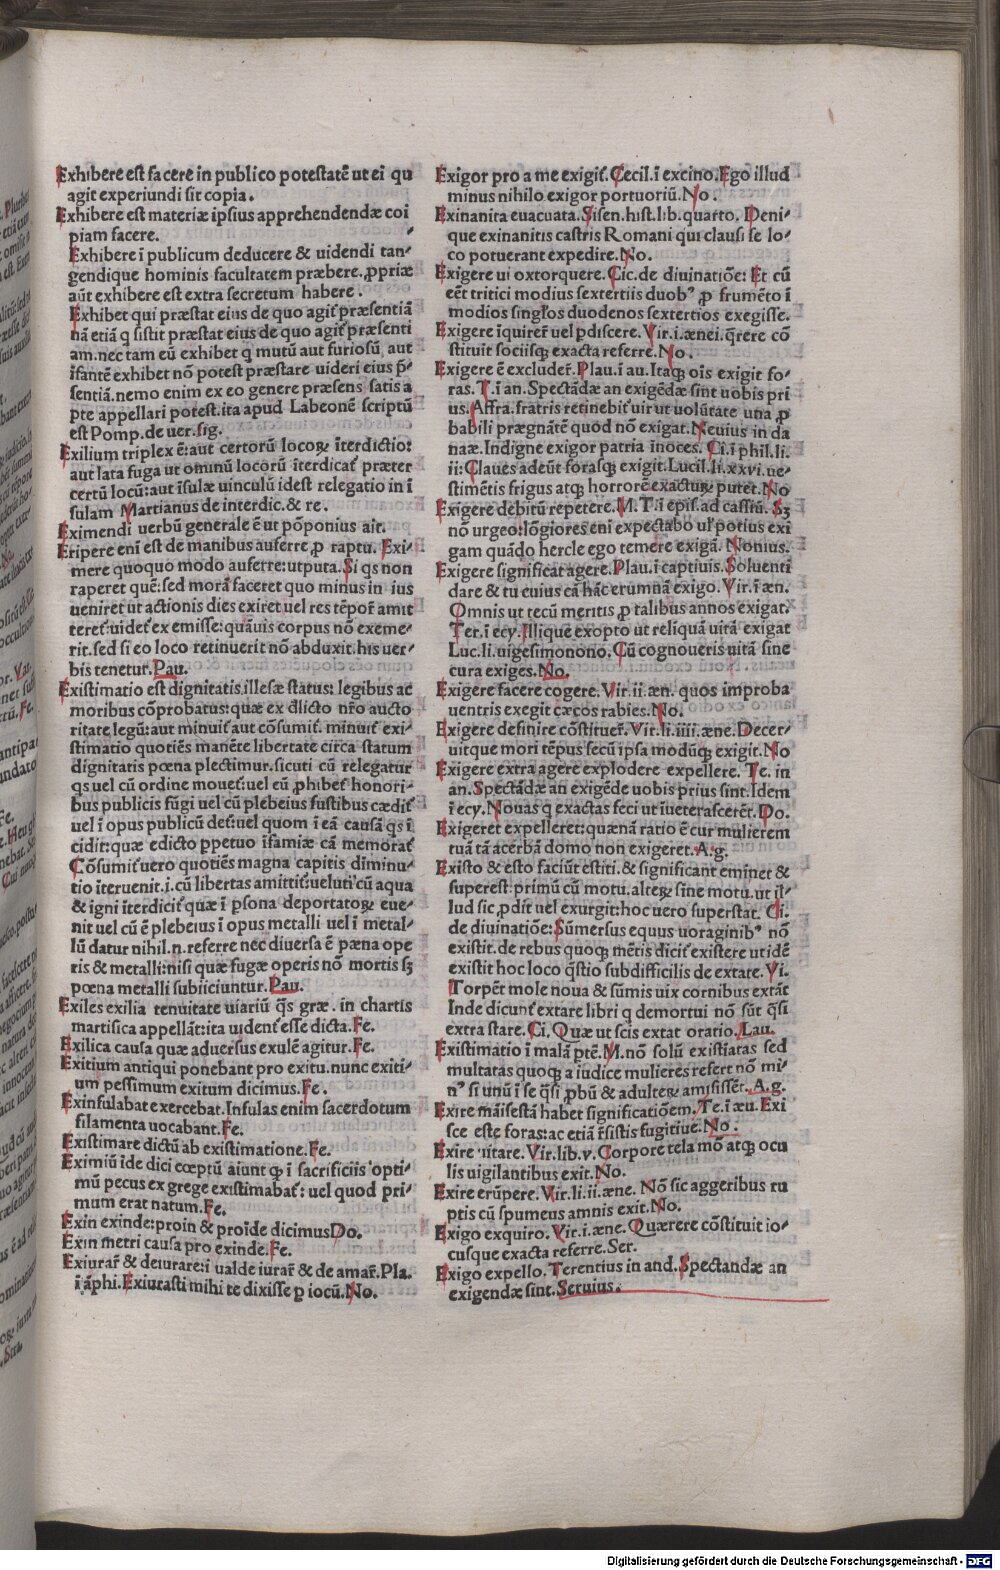 Exhibere est facere in publico potestatē ut ei qu
agit experiundi sit copia.
Exhibere est materiæ ipsius apprehendendæ coi
piam facere.
Exhibere ī publicum deducere & uidendi tan⸗
gendique hominis facultatem præbere. ꝓpriæ
aūt exhibere est extra secretum habere.
Exhibet qui præstat eius de quo agit᷒ præsentiā
nā etiā q sistit præstat eius de quo agit᷒ præsenti
am. nec tam eū exhibet q mutū aut furiosū, aut
īfantē exhibet nō potest præstare uideri eius p̄⸗
sentiā. nemo enim ex eo genere præsens satis a
pte appellari potest. ita apud Labeonē scriptū
est Pomp. de uer. sig.
Exilium triplex ē: aut certorū locoꝝ īterdictio:
aut lata fuga ut omnū locorū īterdicat᷒ præter
certū locū: aut īsulæ uinculū idest relegatio in ī
sulam Martianus de interdic. & re.
Eximendi uerbū generale ē ut pōponius ait.
Eripere enī est de manibus auferre ꝓ raptu. Exi⸗
mere quoquo modo auferre: utputa. Si qs non
raperet quē: sed morā faceret quo minus in ius
ueniret ut actionis dies exiret uel res tēpor᷒ amit
teret᷒: uidet᷒ exemisse: quāuis corpus nō exeme⸗
rit. sed si eo loco retinuerit nō abduxit. his uer⸗
bis tenetur. Pau.
Existimatio est dignitatis illesæ status: legibus ac
moribus cōprobatus: quæ ex dlicto nr̄o aucto
ritate legū: aut minuit᷒ aut cōsumit᷒. minuit᷒ exi⸗
stimatio quotiēs manēte libertate circa statum
dignitatis pœna plectimur. sicuti cū relegatur
qs uel cū ordine mouet᷒: uel cū ꝓhibet᷒ honori⸗
bus publicis fūgi uel cū plebeius fustibus cædit᷒
uel ī opus publicū det᷒: uel quom ī eā causā qs ī
cidit: quæ edicto ꝑpetuo īfamiæ cā memorat᷒
Cōsumit᷒ uero quotiēs magna capitis diminu⸗
tio īteruenit. i. cū libertas amittit᷒: ueluti cū aqua
& igni īterdicit᷒ quæ ī ꝑsona deportatoꝝ eue⸗
nit uel cū ē plebeius ī opus metalli uel ī metal⸗
lū datur nihil. n. referre nec diuersa ē pæna ope
ris & metalli: nisi quæ fugæ operis nō mortis sꝫ
pœna metalli subiiciuntur. Pau.
Exiles exilia tenuitate uiariū q̄s græ. in chartis
martisica appellāt: ita uident᷒ esse dicta. Fe.
Exilica causa quæ aduersus exulē agitur. Fe.
Exitium antiqui ponebant pro exitu. nunc exiti⸗
um pessimum exitum dicimus. Fe.
Exinfulabat exercebat. Infulas enim sacerdotum
filamenta uocabant. Fe.
Existimare dictū ab existimatione. Fe.
Eximiū īde dici cœptū aiunt qꝫ ī sacrificiis opti⸗
mū pecus ex grege existimabat᷒: uel quod pri⸗
mum erat natum. Fe.
Exin exinde: proin & proīde dicimus Do.
Exin metri causa pro exinde. Fe.
Exiurar᷒ & deiurare: i ualde iurar᷒ & de amar᷒. Pla.
ī āphi. Exiurasti mihi te dixisse ꝑ iocū. No.
Exigor pro a me exigit᷒. Cecil. ī excino. Ego illud
minus nihilo exigor portuoriū. No.
Exinanita euacuata. Sisen. hist. lib. quarto. Deni⸗
que exinanitis castris Romani qui clausi se lo⸗
co potuerant expedire. No.
Exigere ui oxtorquere. Cic. de diuinatiōe: Et cū
eēt tritici modius sextertiis duob᷒ ꝓ frumēto ī
modios singłos duodenos sextertios exegisse.
Exigere īquirer᷒ uel ꝑdiscere. Vir. i. ænei. q̄rere cō
stituit sociisqꝫ exacta referre. No.
Exigere ē excluder᷒. Plau. ī au. Itaqꝫ oīs exigit fo⸗
ras. T. ī an. Spectādæ an exigēdæ sint uobis pri
us. Affra. fratris retinebit᷒ uir ut uolūtate una ꝓ
babili prægnātē quod nō exigat. Neuius in da
naæ. Indigne exigor patria inoces. Ci. ī phil. li.
ii: Claues adeūt forasqꝫ exigit. Lucil. li. xxvi. ue⸗
stimētis frigus atqꝫ horrorē exacturꝫ putet. No
Exigere debitū repetere. M. T. ī epis. ad cassiū. Sꝫ
nō urgeo: lōgiores enī expectabo ul᷒ potius exi
gam quādo hercle ego temere exigā. Nonius.
Exigere significat agere. Plau. ī captiuis. Soluenti
dare & tu cuius cā hāc erumnā exigo. Vir. ī æn.
Omnis ut tecū meritis ꝓ talibus annos exigat.
Ter. ī ecy. Illique exopto ut reliquā uitā exigat
Luc. li. uigesimonono. Cū cognoueris uitā sine
cura exiges. No.
Exigere facere cogere. Vir. ii. æn. quos improba
uentris exegit cæcos rabies. No.
Exigere definire cōstituer᷒. Vir. li. iiii. æne. Decer⸗
uitque mori tēpus secū ipsa modūqꝫ exigit. No
Exigere extra agere explodere expellere. Te. in
an. Spectādæ an exigēde uobis prius sint. Idem
ī ecy. Nouas q exactas feci ut īueterascerēt. Do.
Exigeret expelleret: quænā ratio ē cur mulierem
tuā tā acerbā domo non exigeret. A. g.
Existo & esto faciūt estiti. & significant eminet &
superest. primū cū motu. alteꝝ sine motu. ut il⸗
lud sic ꝓdit uel exurgit: hoc uero superstat. Ci.
de diuinatiōe: Sūmersus equus uoraginib᷒ nō
existit. de rebus quoqꝫ mētis dicit᷒ existere ut idē
existit hoc loco q̄stio subdifficilis de extate. Vi.
Torpēt mole noua & sūmis uix cornibus extāt
Inde dicunt᷒ extare libri q demortui nō sūt q̄si
extra stare. Ci. Quæ ut scis extat oratio. Lau.
Existimatio ī malā ptē. M. nō solū existiatas sed
multatas quoqꝫ a iudice mulieres refert nō mi⸗
n᷒ si unū ī se q̄si ꝓbū & adulteꝝ amisissēt. A. g.
Exire māifestā habet significatiōem. Te. ī æu. Exi
sce este foras: ac etiā r̄sistis fugitiue. No.
Exire uitare. Vir. lib. v. Corpore tela mō atqꝫ ocu
lis uigilantibus exit. No.
Exire erūpere. Vir. li. ii. æne. Nō sic aggeribus ru
ptis cū spumeus amnis exit. No.
Exigo exquiro. Vir. i. æne. Quærere cōstituit io⸗
cusque exacta referre. Ser.
Exigo expello. Terentius in and. Spectandæ an
exigendæ sint. Seruius.
Digitalisierung gefördert durch die Deutsche Forschungsgemeinschaft - DFG